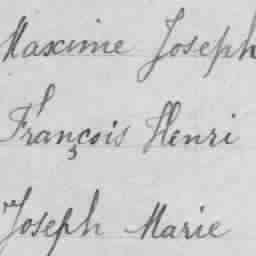 Maxime Joseph
François Henri
Joseph Marie